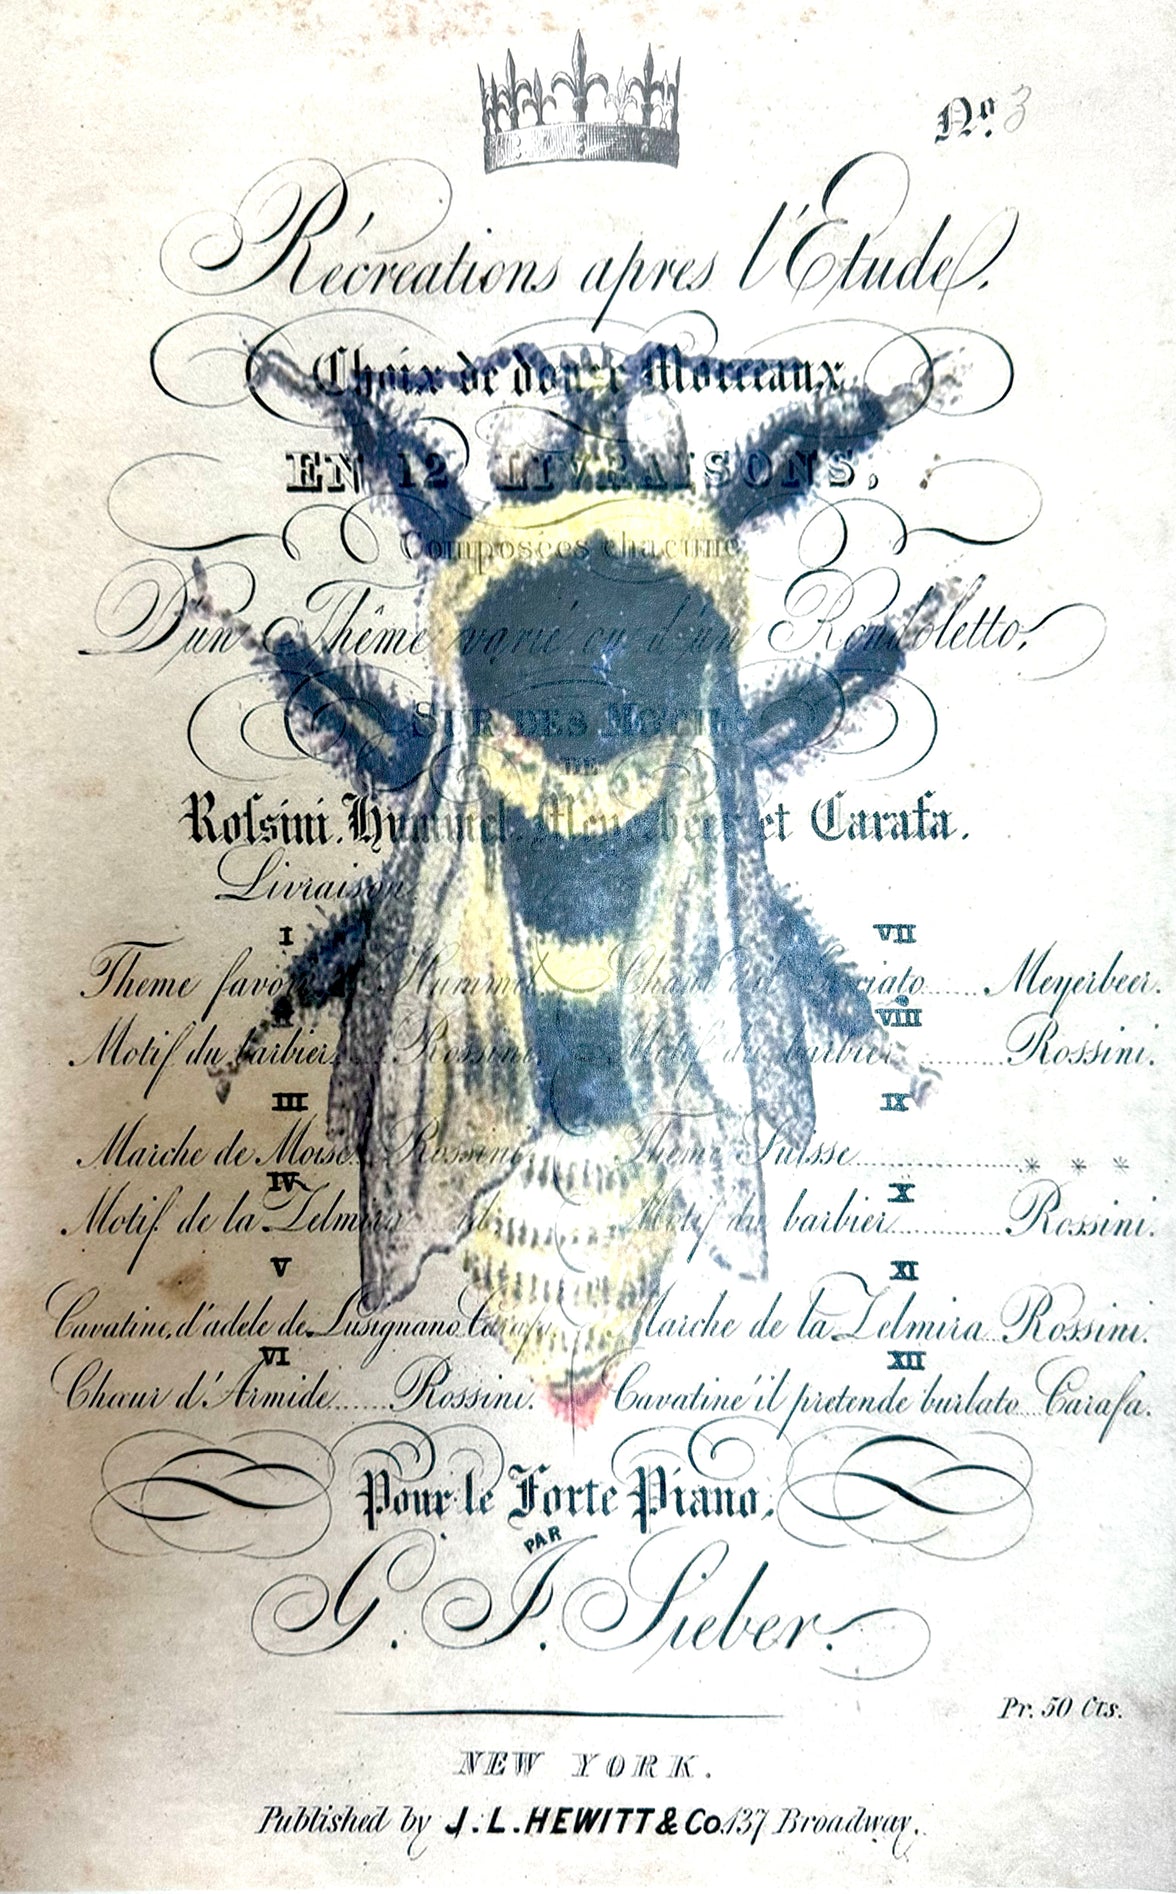 No. 3
Récreations apres l'Etude.
Choix de douze Morceaux
EN 12 LIVRAISONS,
Composées chacune
D'un Thême varié ou d'un Rondoletto,
SUR DES MOTIFS
DE
Rossini. Hummel. Meyerbeer et Carafa.
Livraison
I
Theme favori Hummel.
Motif du barbier. Rossini.
III
Marche de Moise. Rossini.
IV
Motif de la Zelmira id
V
Cavatine d'adele de Lusignano Carafa.
VI
Chœur d'Armide...... Rossini.
VII
Chant du Crociato...... Meyerbeer.
VIII
Motif du barbier ......... Rossini.
IX
Theme Suisse.................... * * *
X
Motif du barbier............ Rossini.
XI
Marche de la Zelmira.. Rossini.
XII
Cavatine il pretende burlato... Carafa.
Pour le Forte Piano,
PAR
G. J. Sieber.
Pr. 50 Cts.
NEW YORK.
Published by J.L. HEWITT & Co. 137 Broadway.